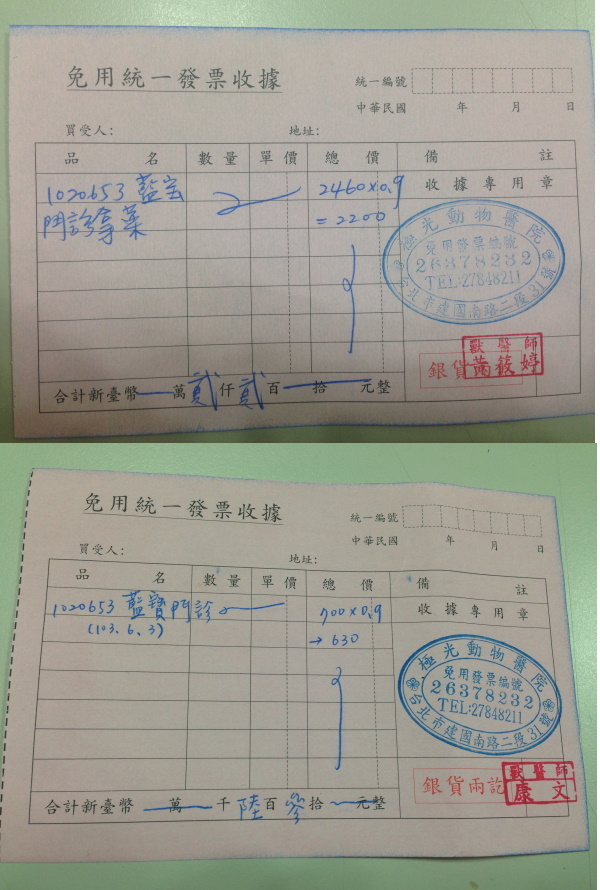 免用統一發票收據
統一編號
中華民國 年 月 日
買受人: 地址:
品 名 數量 單價 總價 備註
1020653 藍宝 2460x0.9 收據專用章
門診拿藥 =2200
極光動物醫院
免用發票編號
26378232
TEL:27848211
台北市建國南路二段31號
獸醫師
銀貨 筱婷
合計新臺幣 萬貳仟貳百 拾 元整
免用統一發票收據
統一編號
中華民國 年 月 日
買受人: 地址:
品 名 數量 單價 總價 備註
1020653 藍寶門診 700x0.9 收據專用章
(103.6.3) →630
極光動物醫院
免用發票編號
26378232
TEL:27848211
台北市建國南路二段31號
獸醫師
銀貨兩訖 康文
合計新臺幣 萬 千陸百參拾 元整